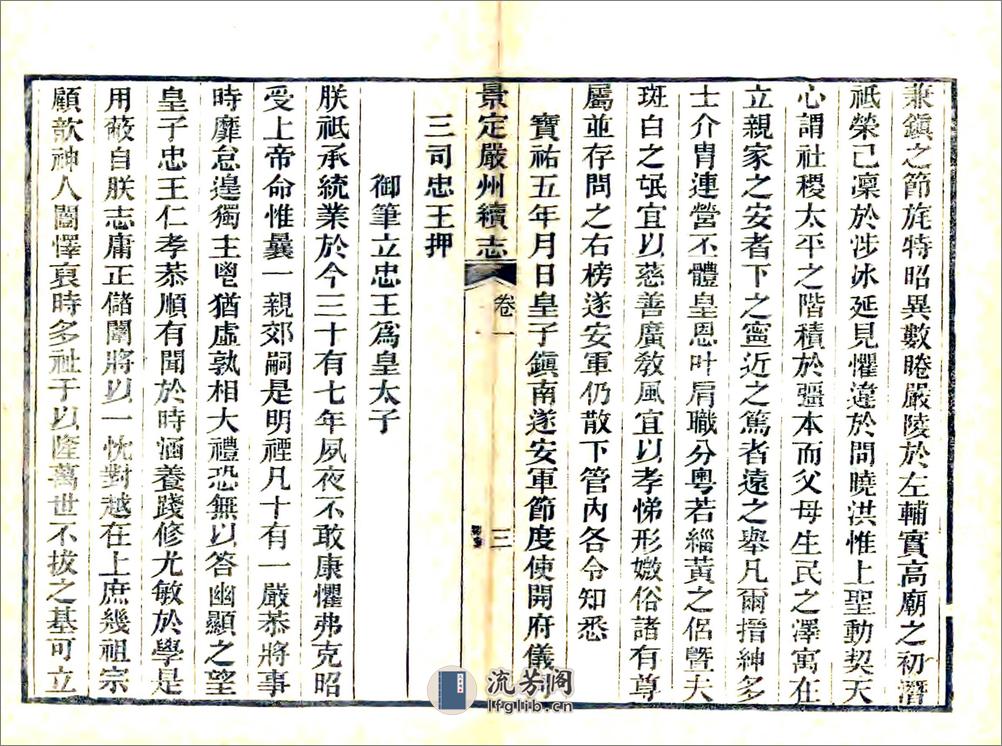 兼鎮之節旄特昭異數睠嚴陵於左輔實高廟之初潛
祗榮已凜於涉冰延見懼違於問曉洪惟上聖動契天
心謂社稷太平之階積於彊本而父母生民之澤寓在
立親家之安者下之寧近之篤者遠之舉凡爾搢紳多
士介胄連營丕體皇恩叶肩職分粵若緇黃之侶暨夫
斑白之氓宜以慈善廣敎風宜以孝悌形媺俗諸有尊
屬並存問之右榜遂安軍仍散下管內各令知悉
寶祐五年月日皇子鎮南遂安軍節度使開府儀同
三司忠王押
景定嚴州續志 卷一 三
御筆立忠王爲皇太子
朕祇承統業於今三十有七年夙夜不敢康懼弗克昭
受上帝命惟曩一親郊嗣是明禋凡十有一嚴恭將事
時靡怠遑獨主鬯猶虛孰相大禮恐無以答幽顯之望
皇子忠王仁孝恭順有聞於時涵養踐修尤敏於學是
用蔽自朕志庸正儲闈將以一忱對越在上庶幾祖宗
顧歆神人闓懌裒時多祉于以隆萬世不拔之基可立
流芳阁
lfglib.cn